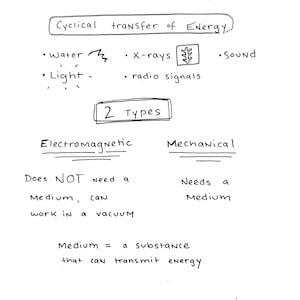 Cyclical transfer of Energy
• Water • X-rays • Sound
• Light • radio signals
2 Types
Electromagnetic Mechanical
Does NOT need a Needs a
Medium, can Medium
work in a vacuum
Medium = a substance
that can transmit energy